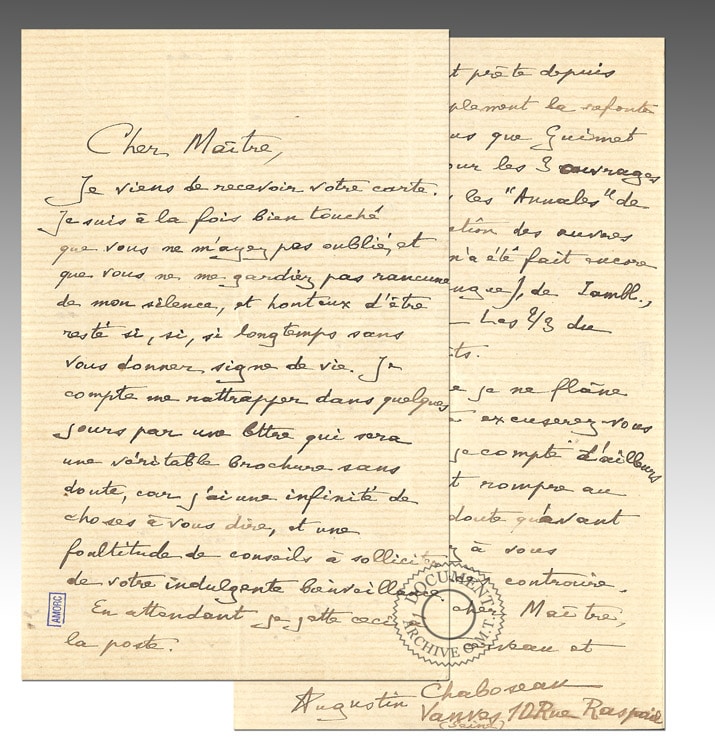 Cher Maître,
Je viens de recevoir votre carte.
Je suis à la fois bien touché
que vous ne m'ayez pas oublié, et
que vous ne me gardiez pas rancune
de mon silence, et honteux d'être
resté si, si, si longtemps sans
vous donner signe de vie. Je
compte me rattrapper dans quelques
jours par une lettre qui sera
une véritable brochure sans
doute, car j'ai une infinité de
choses à vous dire, et une
foultitude de conseils à sollicit
de votre indulgente bienveillance
En attendant je jette ceci
la poste.
AMORC
t prête depuis
plement la refonte
us que Guimet
our les 3 ouvrages
les "Annales" de
ction des œuvres
n'a été fait encore
ngue], de Iambl.,
– Les 2/3 du
ts.
e je ne flâne
excuserez-vous
je compte d'ailleurs
t rompre au
doute qu'avant
à vous
contraire.
cher Maître,
et
DOCUMENT
ARCHIVE O.M.T.
Augustin Chaboseau
Vanves 10 Rue Raspail
(Seine)